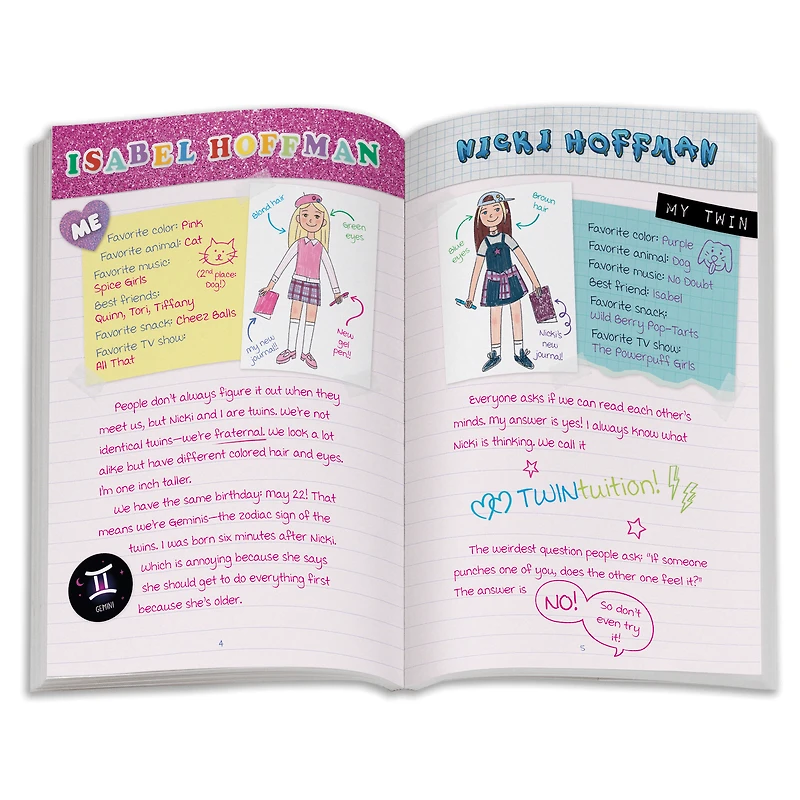 ISABEL HOFFMAN
ME
Favorite color: Pink
Favorite animal: Cat
(2nd place: Dog!)
Favorite music:
Spice Girls
Best friends:
Quinn, Tori, Tiffany
Favorite snack: Cheez Balls
Favorite TV show:
All That
Blond hair
Green eyes
My new journal!!
New gel pen!!
People don't always figure it out when they
meet us, but Nicki and I are twins. We're not
identical twins—we're fraternal. We look a lot
alike but have different colored hair and eyes.
I'm one inch taller.
We have the same birthday: May 22! That
means we're Geminis—the zodiac sign of the
twins. I was born six minutes after Nicki,
which is annoying because she says
she should get to do everything first
because she's older.
GEMINI
4
NICKI HOFFMAN
MY TWIN
Brown hair
Blue eyes
Nicki's new journal!
Favorite color: Purple
Favorite animal: Dog
Favorite music: No Doubt
Best friend: Isabel
Favorite snack:
Wild Berry Pop-Tarts
Favorite TV show:
The Powerpuff Girls
Everyone asks if we can read each other's
minds. My answer is yes! I always know what
Nicki is thinking. We call it
TWINtuition!
The weirdest question people ask: "If someone
punches one of you, does the other one feel it?"
The answer is
NO!
So don't
even try
it!
5